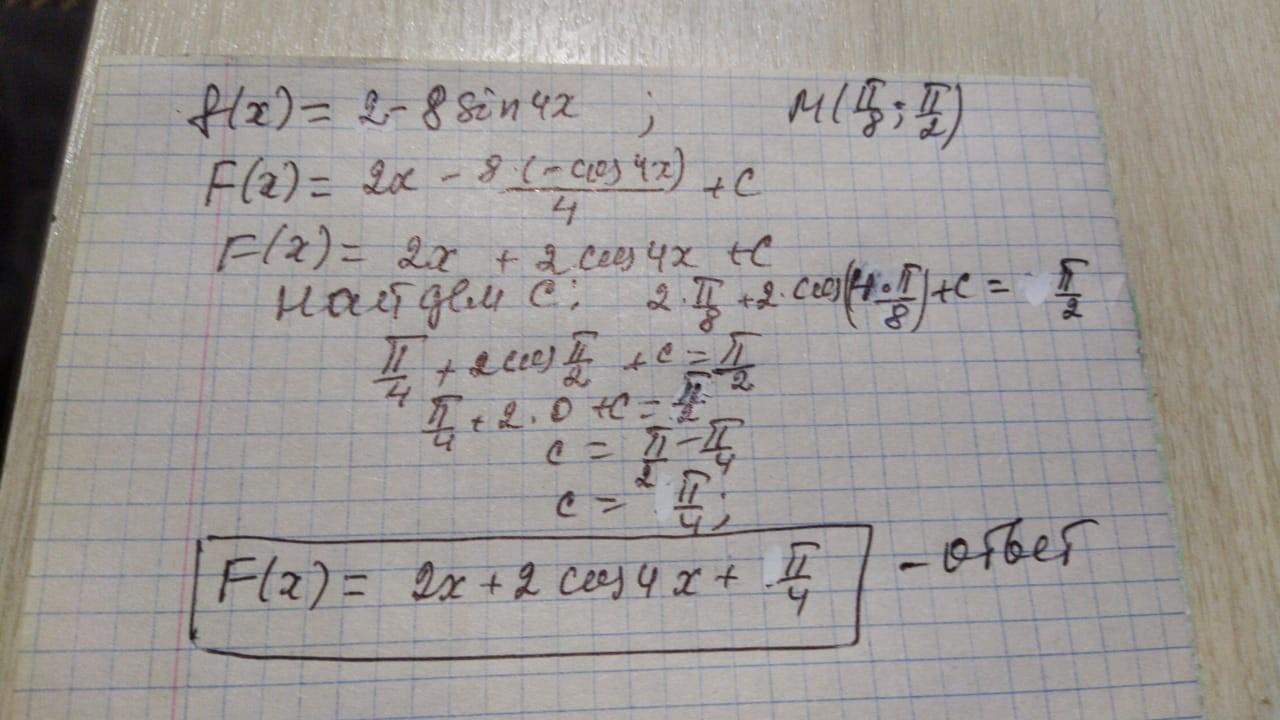 f(x) = 2 - 8 sin 4x ; M(π/8; π/2)
F(x) = 2x - 8·(-cos 4x)/4 + C
F(x) = 2x + 2 cos 4x + C
Найдем C: 2·π/8 + 2·cos(4·π/8) + C = π/2
π/4 + 2 cos π/2 + C = π/2
π/4 + 2·0 + C = π/2
C = π/2 - π/4
C = π/4;
F(x) = 2x + 2 cos 4x + π/4 - ответ